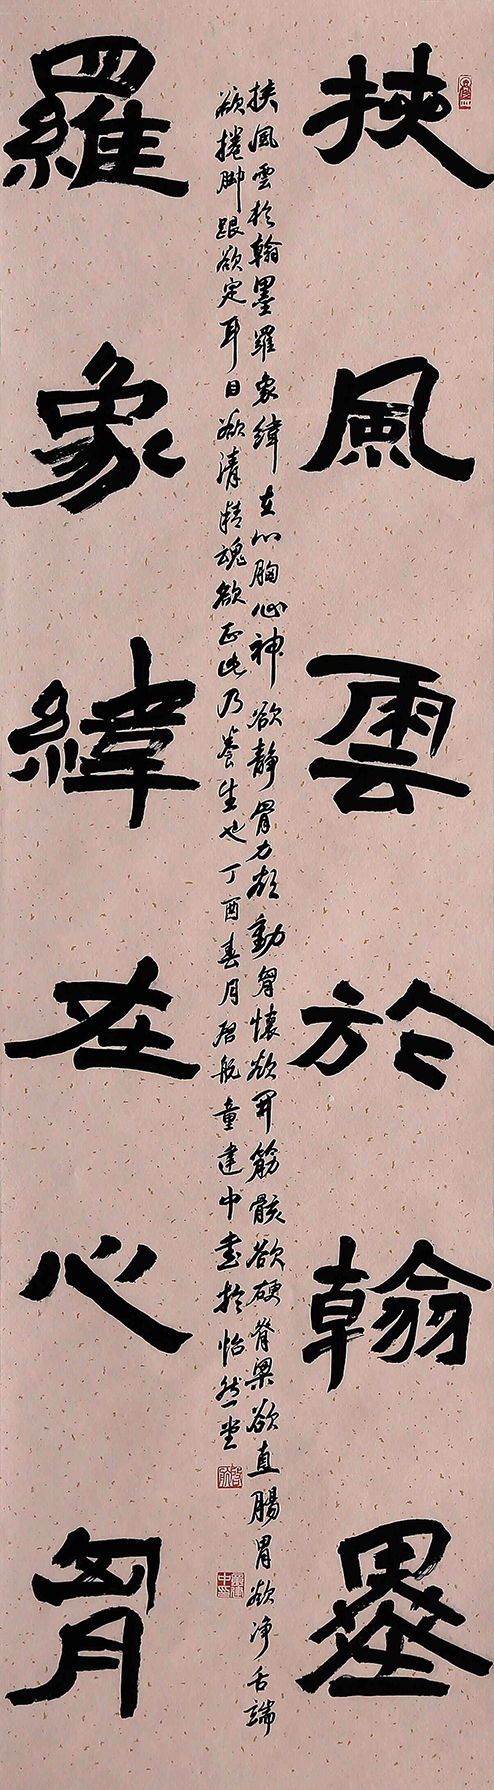 挾風雲於翰墨
挟風雲於翰墨羅象緯在心胸心神欲静骨力欲動胷懷欲開筋骸欲硬脊梁欲直腸胃欲净舌端
欲捲脚跟欲定耳目欲清精魂欲正此乃養生也丁酉春月啓航童建中書於怡然堂
羅象緯在心胷